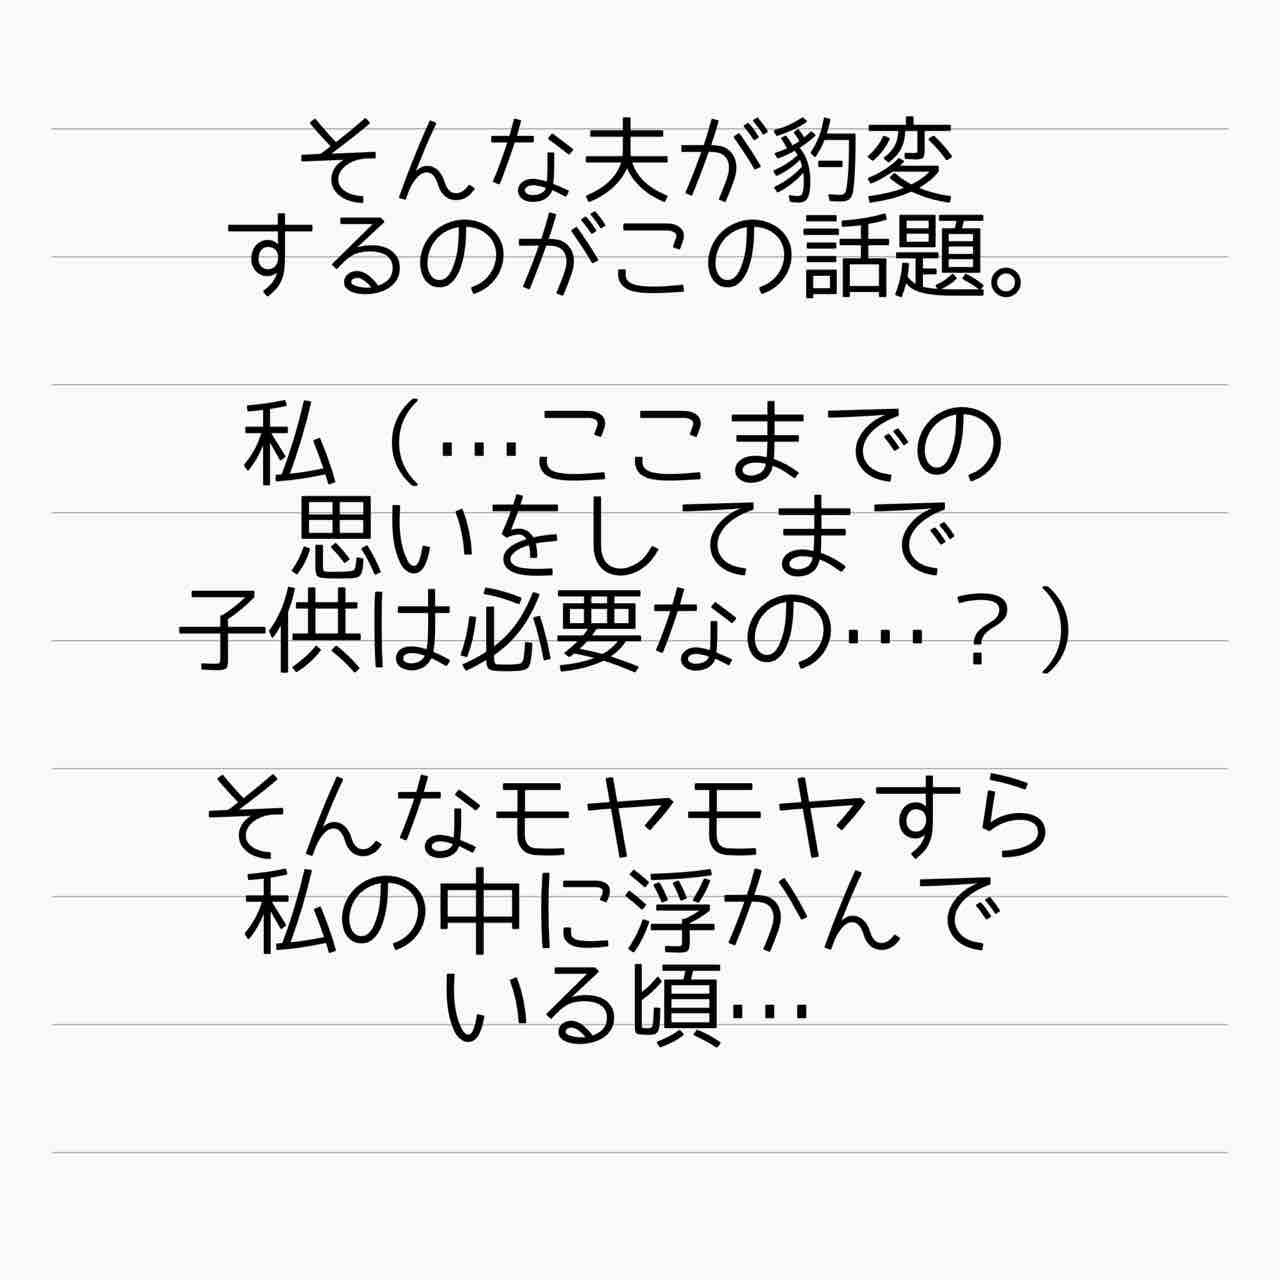 そんな夫が豹変
するのがこの話題。
私（…ここまでの
思いをしてまで
子供は必要なの…？）
そんなモヤモヤすら
私の中に浮かんで
いる頃…